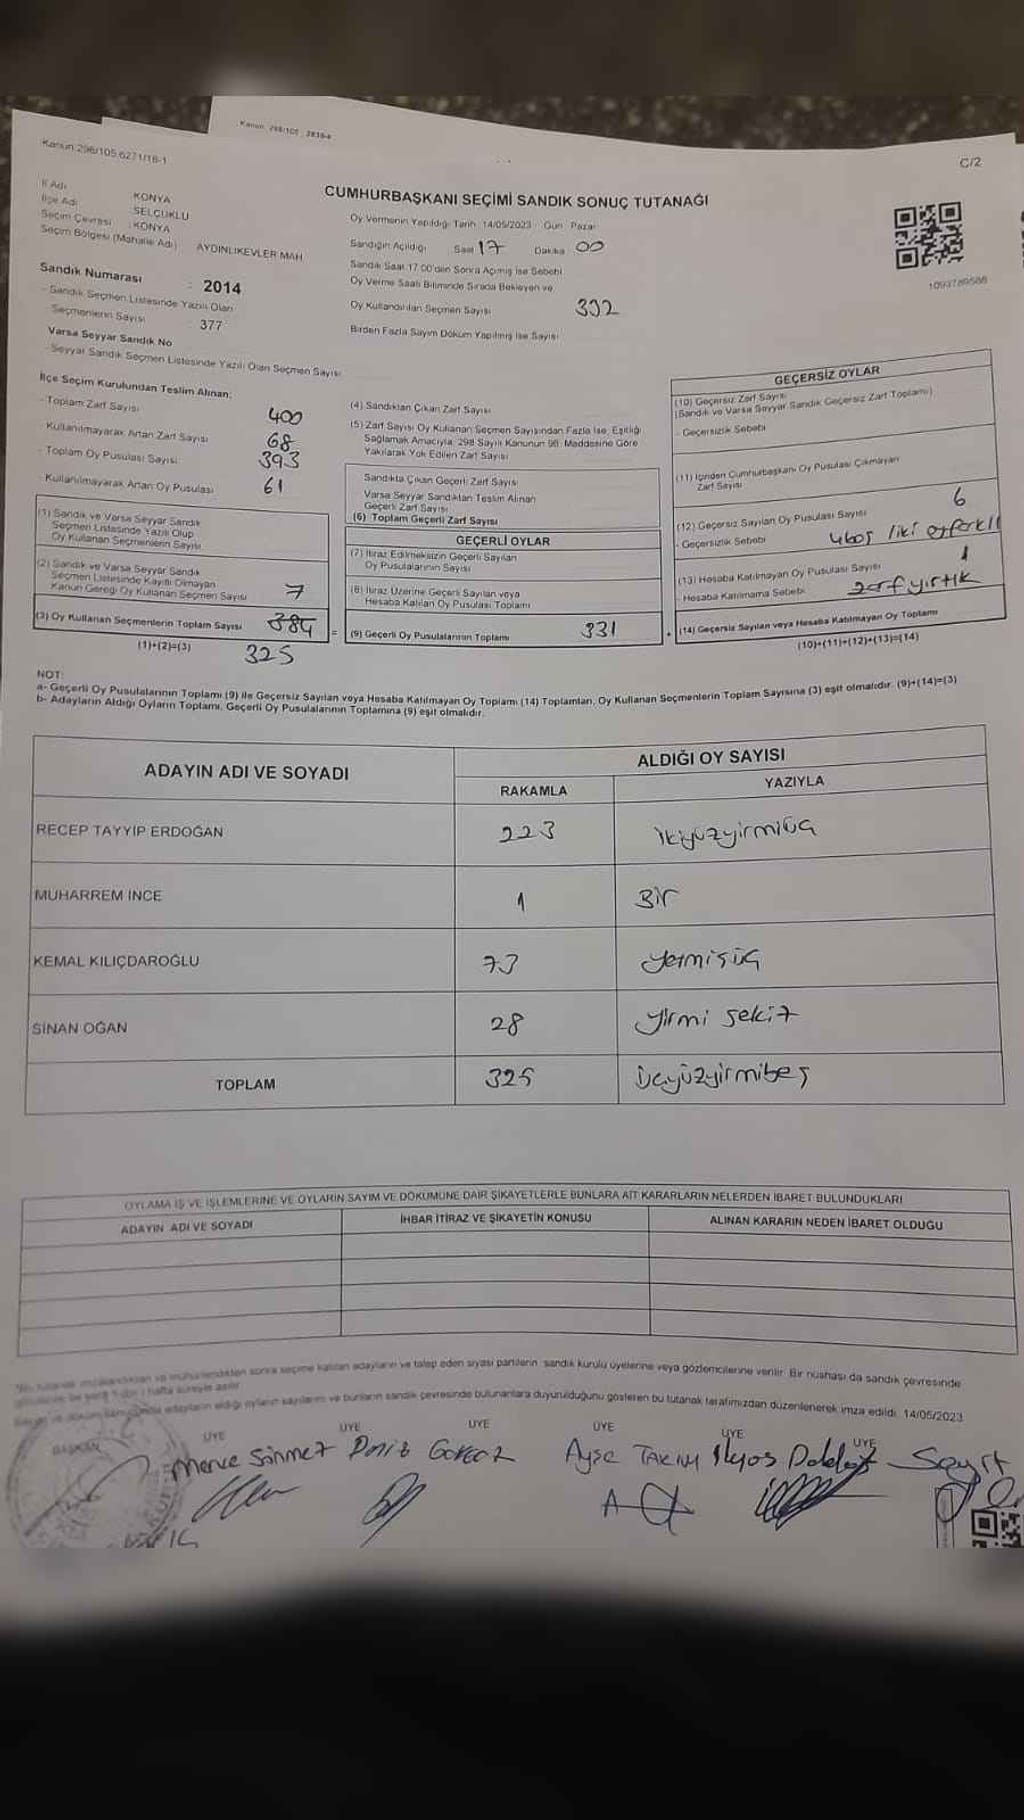 Kanun: 298/105
Kanun:298/105,6271/18-1
C/2
CUMHURBAŞKANI SEÇİMİ SANDIK SONUÇ TUTANAĞI
İl Adı KONYA
İlçe Adı SELÇUKLU
Seçim Çevresi : KONYA
Seçim Bölgesi (Mahalle Adı) AYDINLIKEVLER MAH
Sandık Numarası : 2014
- Sandık Seçmen Listesinde Yazılı Olan
Seçmenlerin Sayısı : 377
Varsa Seyyar Sandık No
- Seyyar Sandık Seçmen Listesinde Yazılı Olan Seçmen Sayısı
Oy Vermenin Yapıldığı Tarih 14/05/2023 Gün Pazar
Sandığın Açıldığı Saat 17 Dakika 00
Sandık Saat 17.00'den Sonra Açılmış İse Sebebi
Oy Verme Saati Bitiminde Sırada Bekleyen ve
Oy Kullandırılan Seçmen Sayısı 332
Birden Fazla Sayım Döküm Yapılmış İse Sayısı
1093789588
İlçe Seçim Kurulundan Teslim Alınan:
- Toplam Zarf Sayısı 400
- Kullanılmayarak Artan Zarf Sayısı 68
- Toplam Oy Pusulası Sayısı 393
- Kullanılmayarak Artan Oy Pusulası 61
(1) Sandık ve Varsa Seyyar Sandık
Seçmen Listesinde Yazılı Olup
Oy Kullanan Seçmenlerin Sayısı
(2) Sandık ve Varsa Seyyar Sandık
Seçmen Listesinde Kayıtlı Olmayan
Kanun Gereği Oy Kullanan Seçmen Sayısı 7
(3) Oy Kullanan Seçmenlerin Toplam Sayısı 384
(1)+(2)=(3)
325
(4) Sandıktan Çıkan Zarf Sayısı
(5) Zarf Sayısı Oy Kullanan Seçmen Sayısından Fazla İse, Eşitliği
Sağlamak Amacıyla, 298 Sayılı Kanunun 98. Maddesine Göre
Yakılarak Yok Edilen Zarf Sayısı
Sandıkta Çıkan Geçerli Zarf Sayısı
Varsa Seyyar Sandıktan Teslim Alınan
Geçerli Zarf Sayısı
(6) Toplam Geçerli Zarf Sayısı
GEÇERLİ OYLAR
(7) İtiraz Edilmeksizin Geçerli Sayılan
Oy Pusulalarının Sayısı
(8) İtiraz Üzerine Geçerli Sayılan veya
Hesaba Katılan Oy Pusulası Toplamı
= (9) Geçerli Oy Pusulalarının Toplamı 331
GEÇERSİZ OYLAR
(10) Geçersiz Zarf Sayısı
(Sandık ve Varsa Seyyar Sandık Geçersiz Zarf Toplamı)
- Geçersizlik Sebebi
(11) İçinden Cumhurbaşkanı Oy Pusulası Çıkmayan
Zarf Sayısı
(12) Geçersiz Sayılan Oy Pusulası Sayısı 6
- Geçersizlik Sebebi 4boş
(13) Hesaba Katılmayan Oy Pusulası Sayısı 1
- Hesaba Katılmama Sebebi zarf yırtık
+ (14) Geçersiz Sayılan veya Hesaba Katılmayan Oy Toplamı
(10)+(11)+(12)+(13)=(14)
NOT:
a- Geçerli Oy Pusulalarının Toplamı (9) ile Geçersiz Sayılan veya Hesaba Katılmayan Oy Toplamı (14) Toplamları, Oy Kullanan Seçmenlerin Toplam Sayısına (3) eşit olmalıdır. (9)+(14)=(3)
b- Adayların Aldığı Oyların Toplamı, Geçerli Oy Pusulalarının Toplamına (9) eşit olmalıdır.
ADAYIN ADI VE SOYADI ALDIĞI OY SAYISI
RAKAMLA YAZIYLA
RECEP TAYYİP ERDOĞAN 223 ikiyüzyirmiüç
MUHARREM İNCE 1 Bir
KEMAL KILIÇDAROĞLU 73 yetmişüç
SİNAN OĞAN 28 yirmi sekiz
TOPLAM 325 üçyüzyirmibeş
OYLAMA İŞ VE İŞLEMLERİNE VE OYLARIN SAYIM VE DÖKÜMÜNE DAİR ŞİKAYETLERLE BUNLARA AİT KARARLARIN NELERDEN İBARET BULUNDUKLARI
ADAYIN ADI VE SOYADI İHBAR İTİRAZ VE ŞİKAYETİN KONUSU ALINAN KARARIN NEDEN İBARET OLDUĞU
sonra seçime katılan adayların ve talep eden siyasi partilerin sandık kurulu üyelerine veya gözlemcilerine verilir. Bir nüshası da sandık çevresinde
hafta süreyle asılır
adayların aldığı oyların sayılarını ve bunların sandık çevresinde bulunanlara duyurulduğunu gösteren bu tutanak tarafımızdan düzenlenerek imza edildi. 14/05/2023
BAŞKAN ÜYE ÜYE ÜYE ÜYE ÜYE ÜYE
Merve Sönmez Deniz Ayşe TAKIM İlyas Seyit